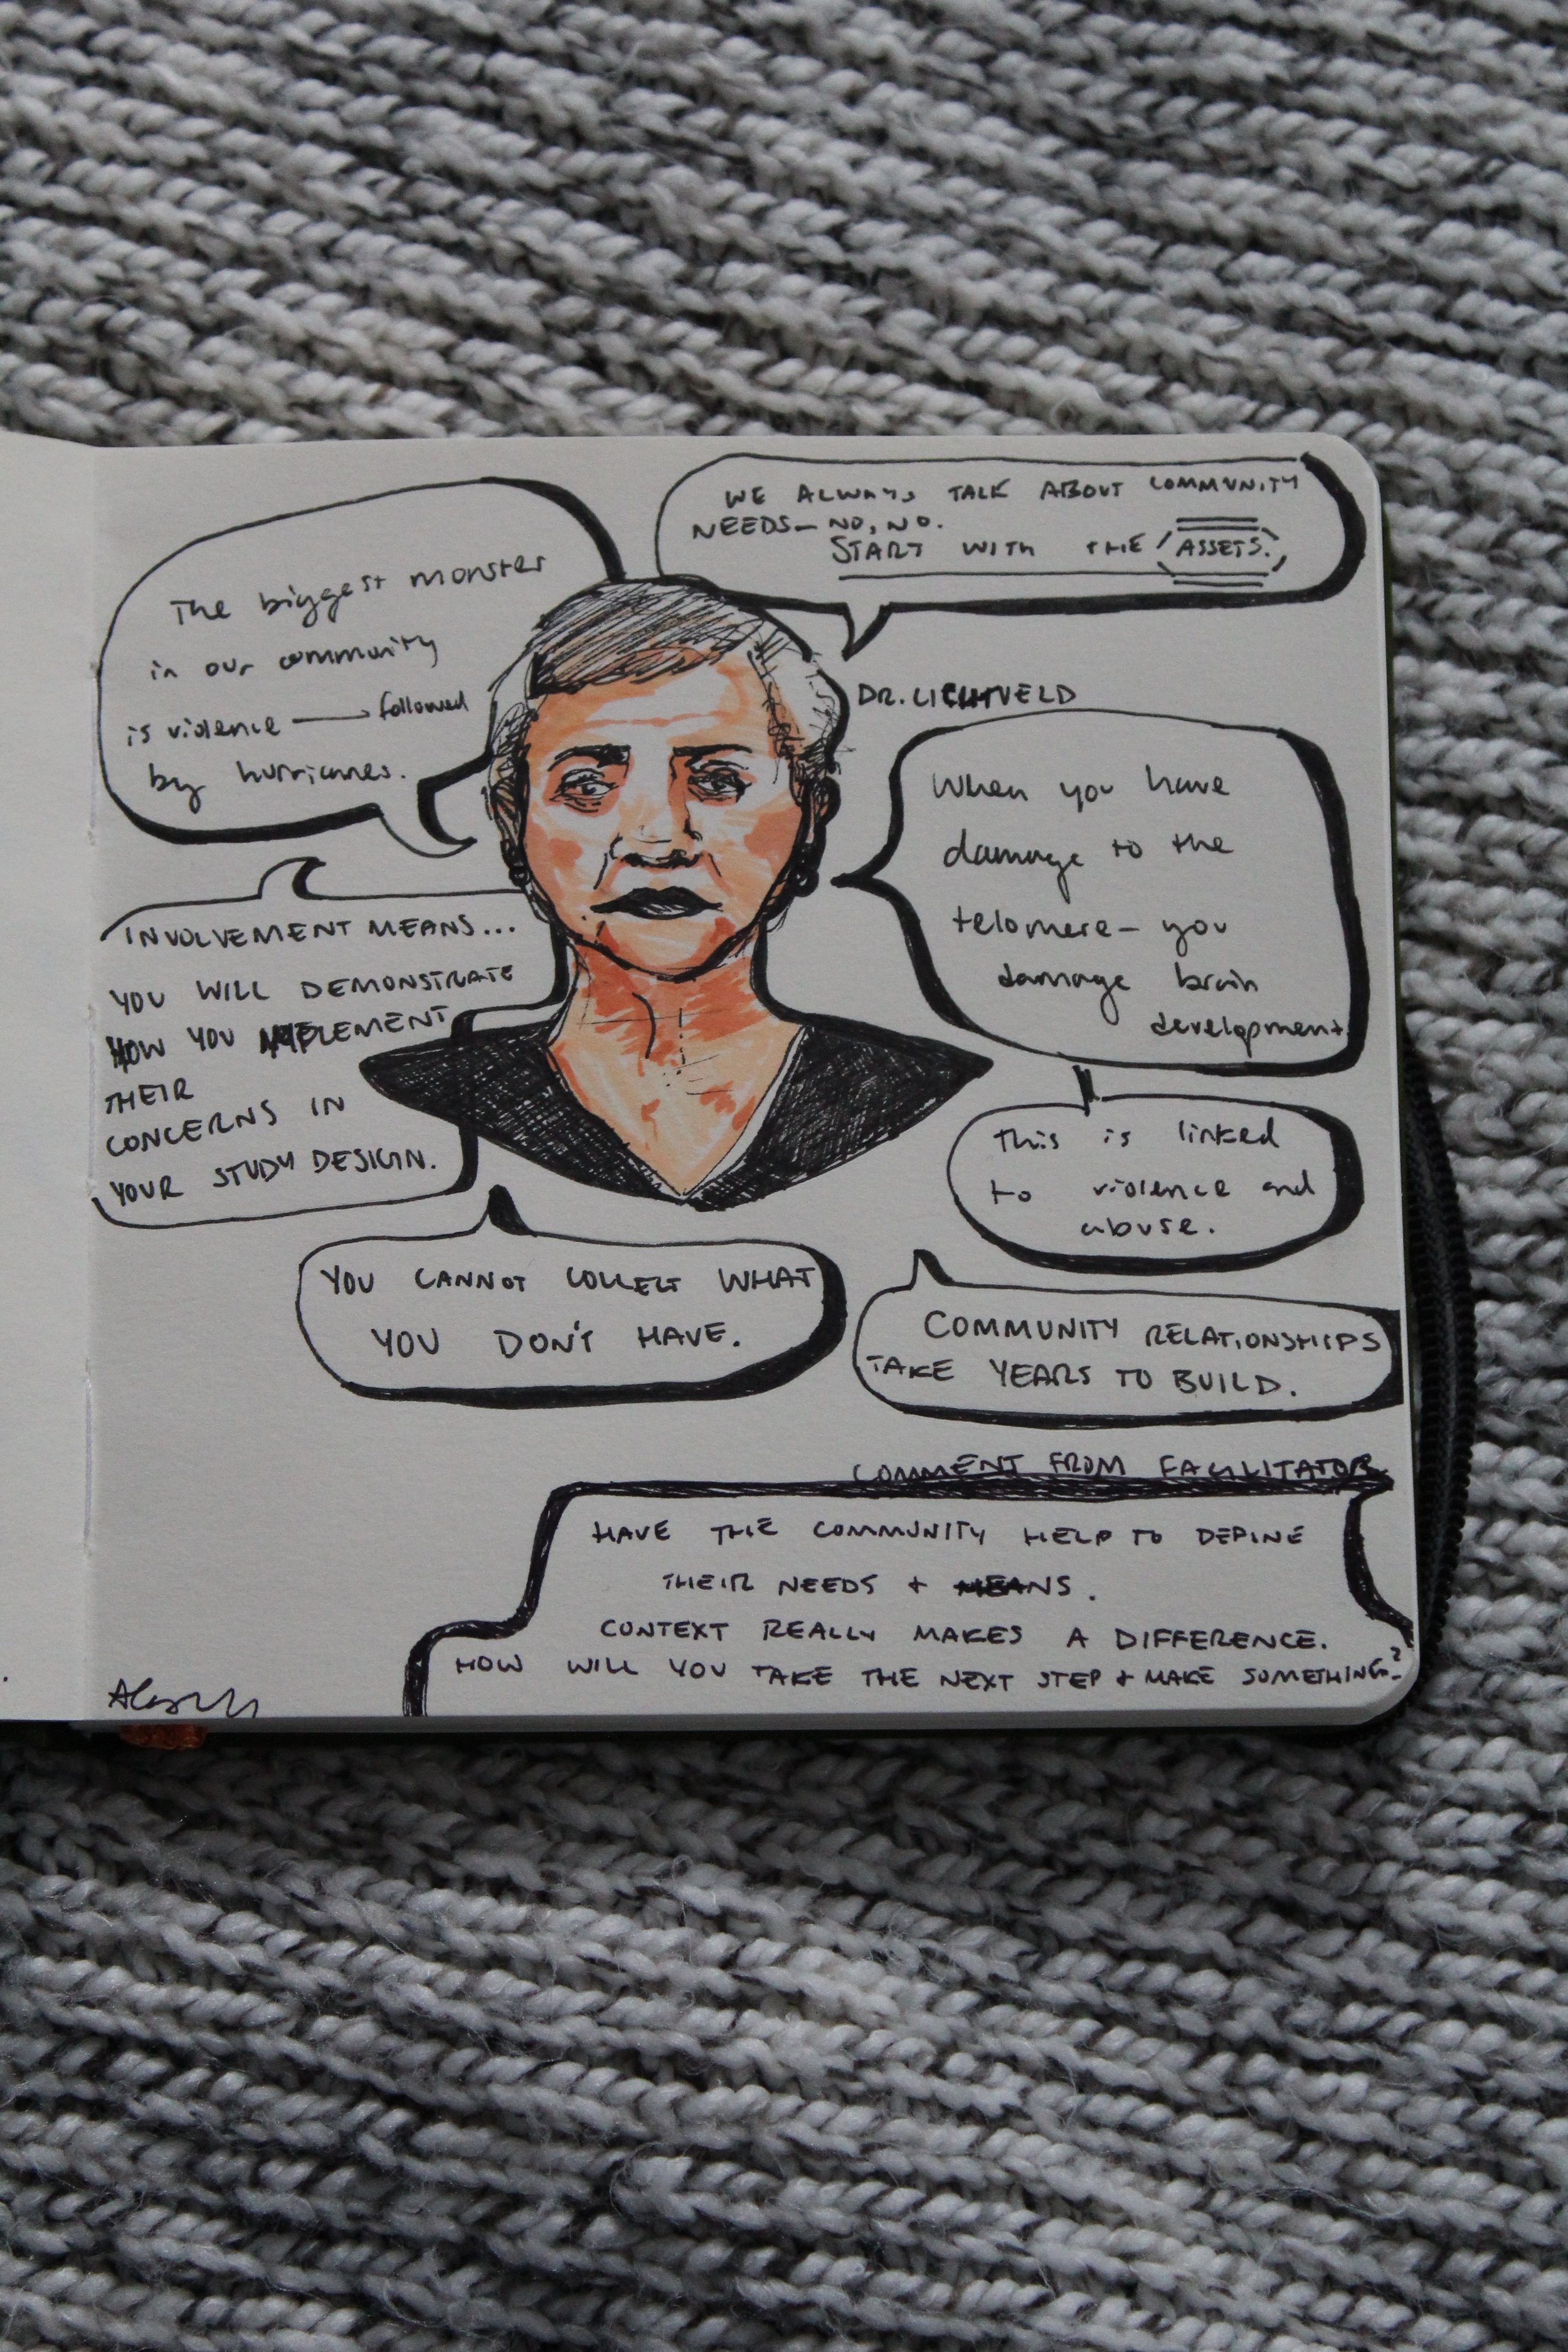 The biggest monster
in our community
is violence → followed
by hurricanes.
WE ALWAYS TALK ABOUT COMMUNITY
NEEDS — NO, NO.
START WITH THE ASSETS.
DR. LICHTVELD
When you have
damage to the
telomere — you
damage brain
development.
INVOLVEMENT MEANS...
YOU WILL DEMONSTRATE
HOW YOU IMPLEMENT
THEIR
CONCERNS IN
YOUR STUDY DESIGN.
This is linked
to violence and
abuse.
YOU CANNOT COLLECT WHAT
YOU DON'T HAVE.
COMMUNITY RELATIONSHIPS
TAKE YEARS TO BUILD.
COMMENT FROM FACILITATOR
HAVE THE COMMUNITY HELP TO DEFINE
THEIR NEEDS + MEANS.
CONTEXT REALLY MAKES A DIFFERENCE.
HOW WILL YOU TAKE THE NEXT STEP + MAKE SOMETHING?